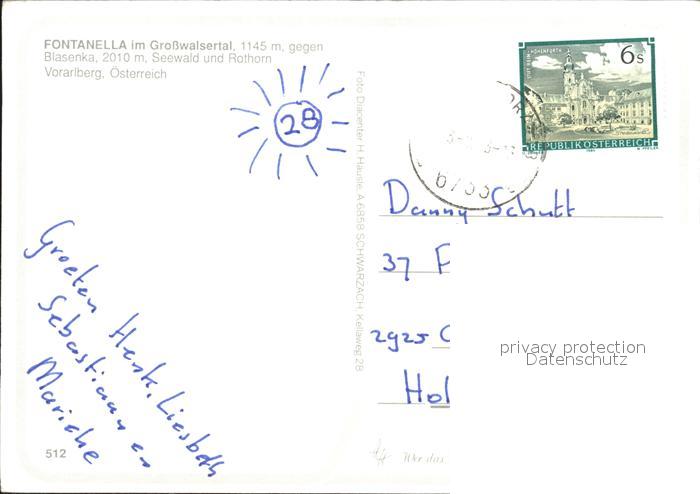 FONTANELLA im Großwalsertal, 1145 m, gegen
Blasenka, 2010 m, Seewald und Rothorn
Vorarlberg, Österreich
28
Groeten Henk, Liesbeth
Sebastiaan en
Marieke
512
Foto Diacenter H. Häusle, A 6858 SCHWARZACH, Kellaweg 28
6s
STIFT REIN-HOHENFURTH
REPUBLIK ÖSTERREICH
6733
Danny Schutt
37
2925
Hol
Wer das
privacy protection
Datenschutz